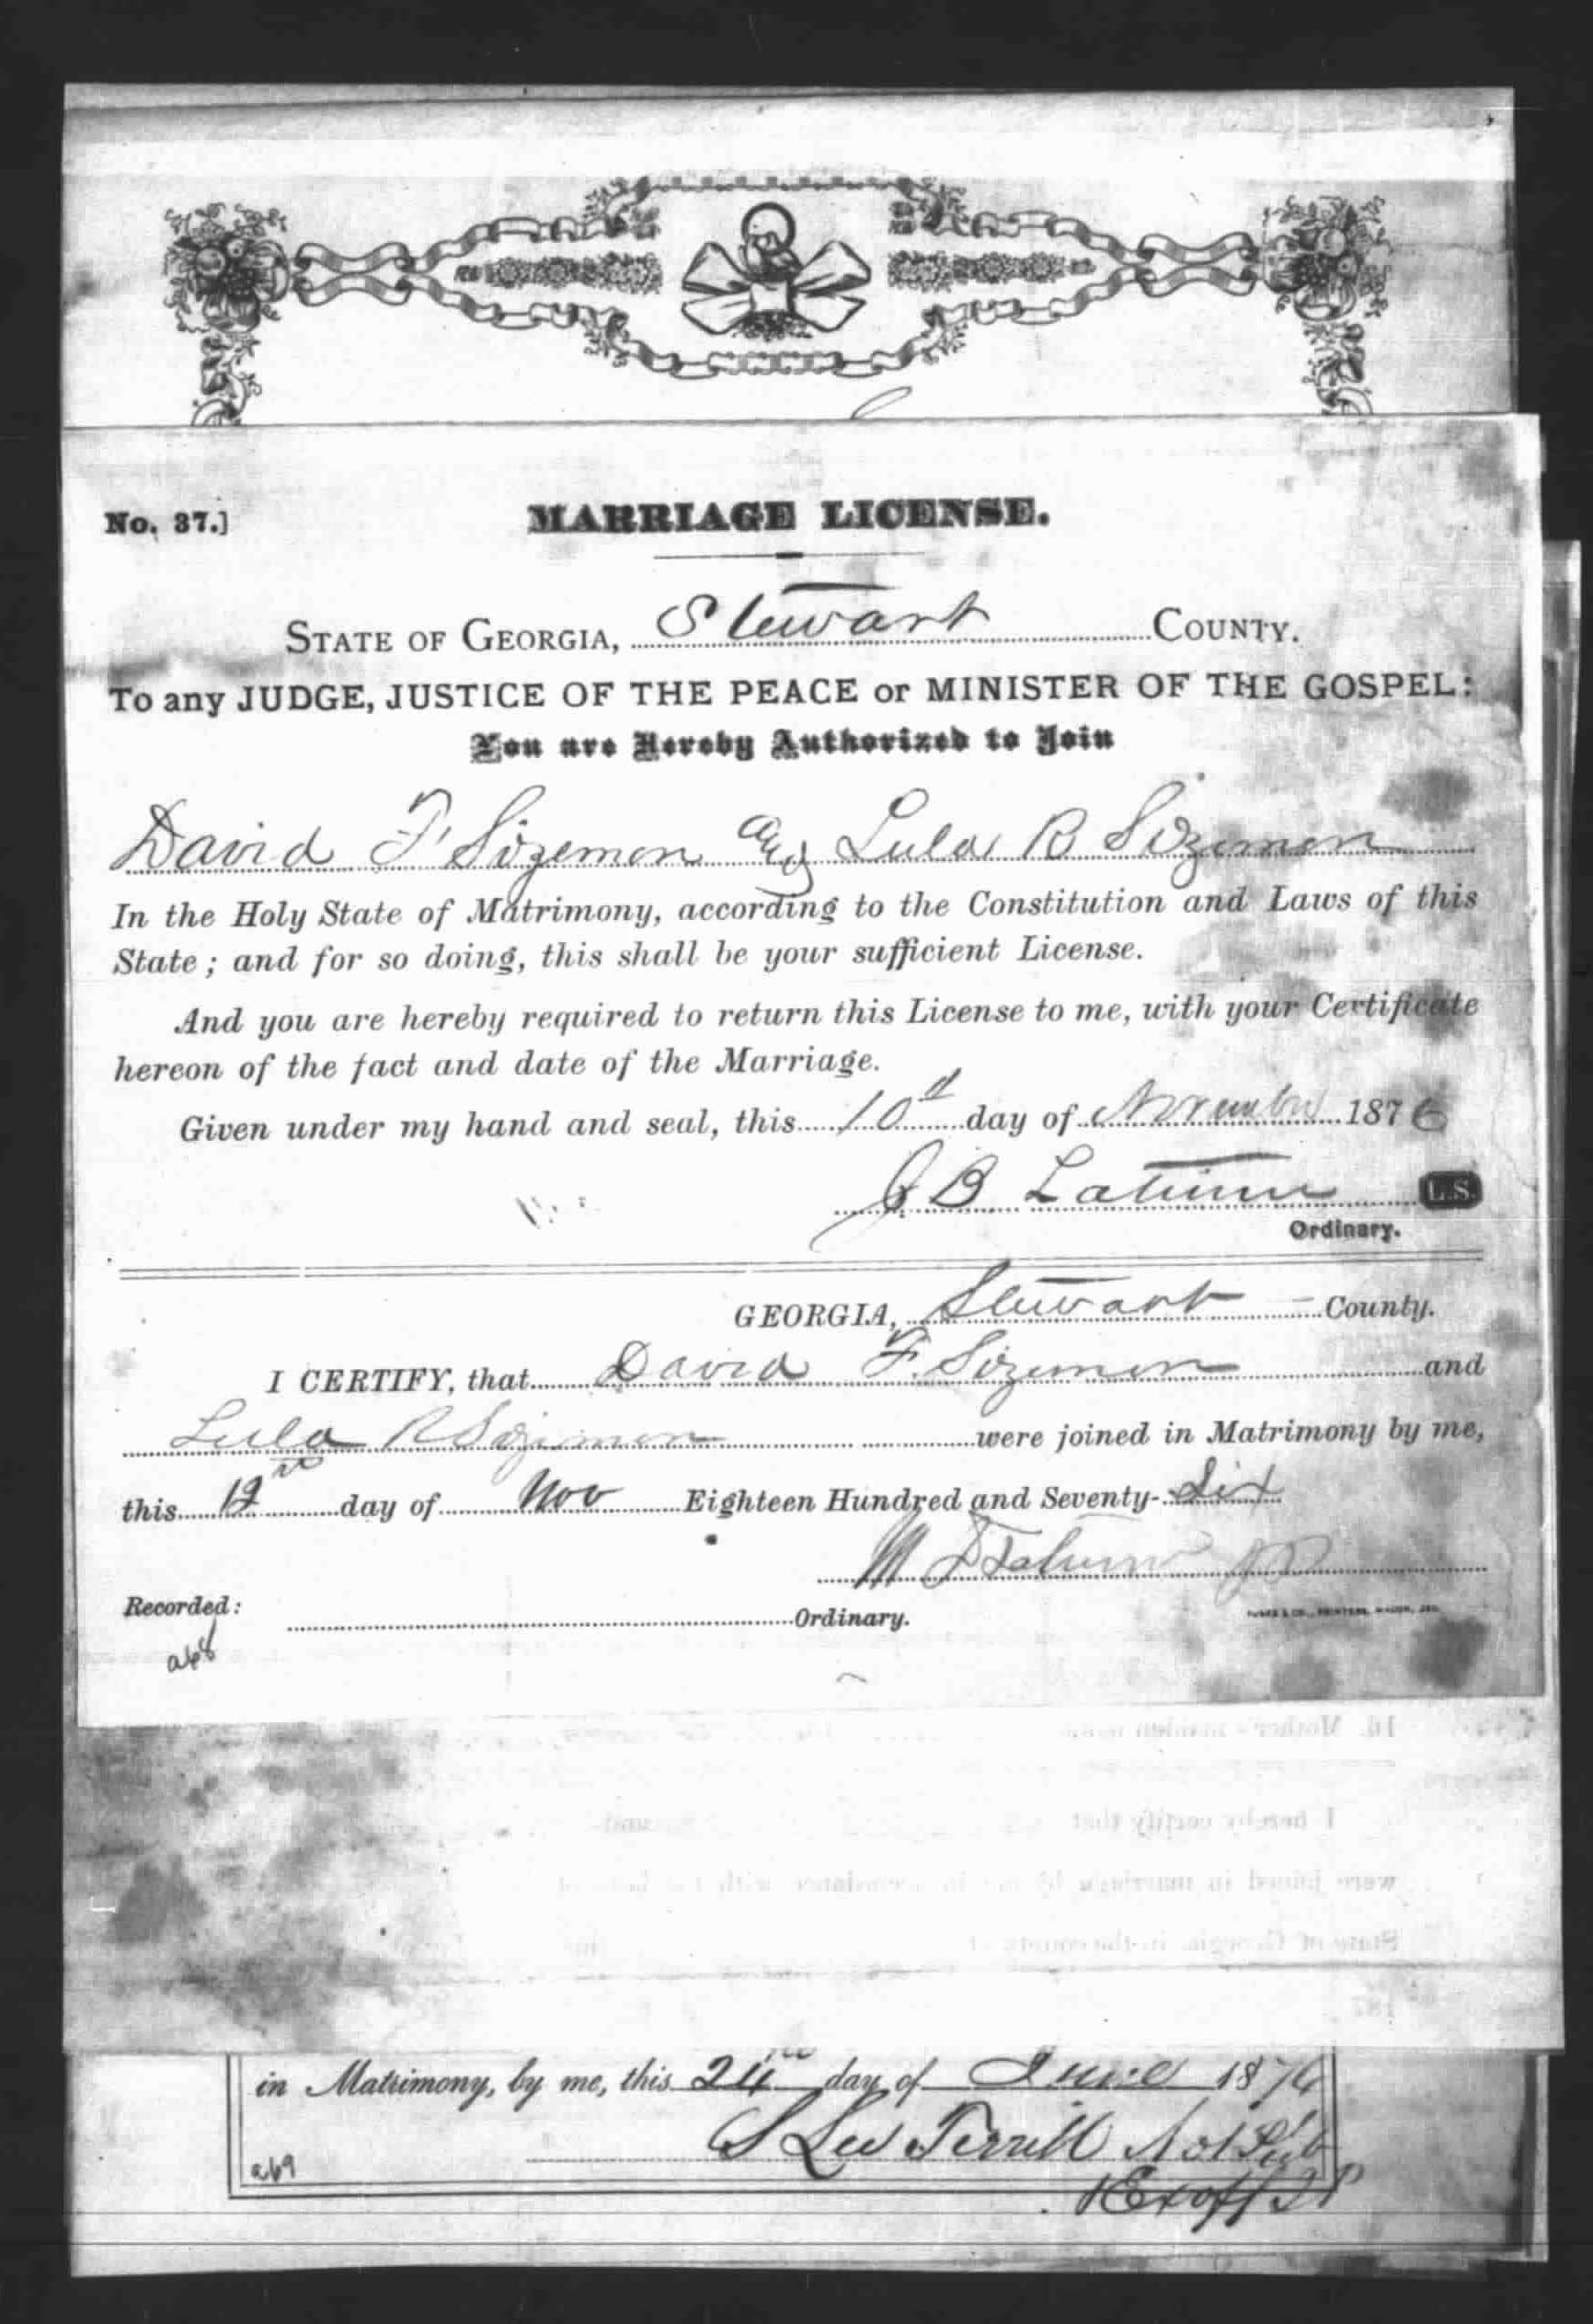 No. 37.]
MARRIAGE LICENSE.
STATE OF GEORGIA, Stewart COUNTY.
To any JUDGE, JUSTICE OF THE PEACE or MINISTER OF THE GOSPEL:
You are Hereby Authorized to Join
David F. Sizemon and Lula R Sizemon
In the Holy State of Matrimony, according to the Constitution and Laws of this
State; and for so doing, this shall be your sufficient License.
And you are hereby required to return this License to me, with your Certificate
hereon of the fact and date of the Marriage.
Given under my hand and seal, this 10th day of November 1876
J B Latimer L.S.
Ordinary.
GEORGIA, Stewart County.
I CERTIFY, that David F. Sizemon and
Lula R Sizemon were joined in Matrimony by me,
this 12th day of Nov Eighteen Hundred and Seventy-Six
M D Tatum JP
Recorded:
Ordinary.
PRINTERS, MACON, GEO.
a68
16. Mother's maiden name
I hereby certify that and
were joined in marriage by me in accordance with the laws of
State of Georgia, in the county of
187
in Matrimony, by me, this 24th day of June 1876
S Lee Terrill Not Pub
a69
& Exoff J P